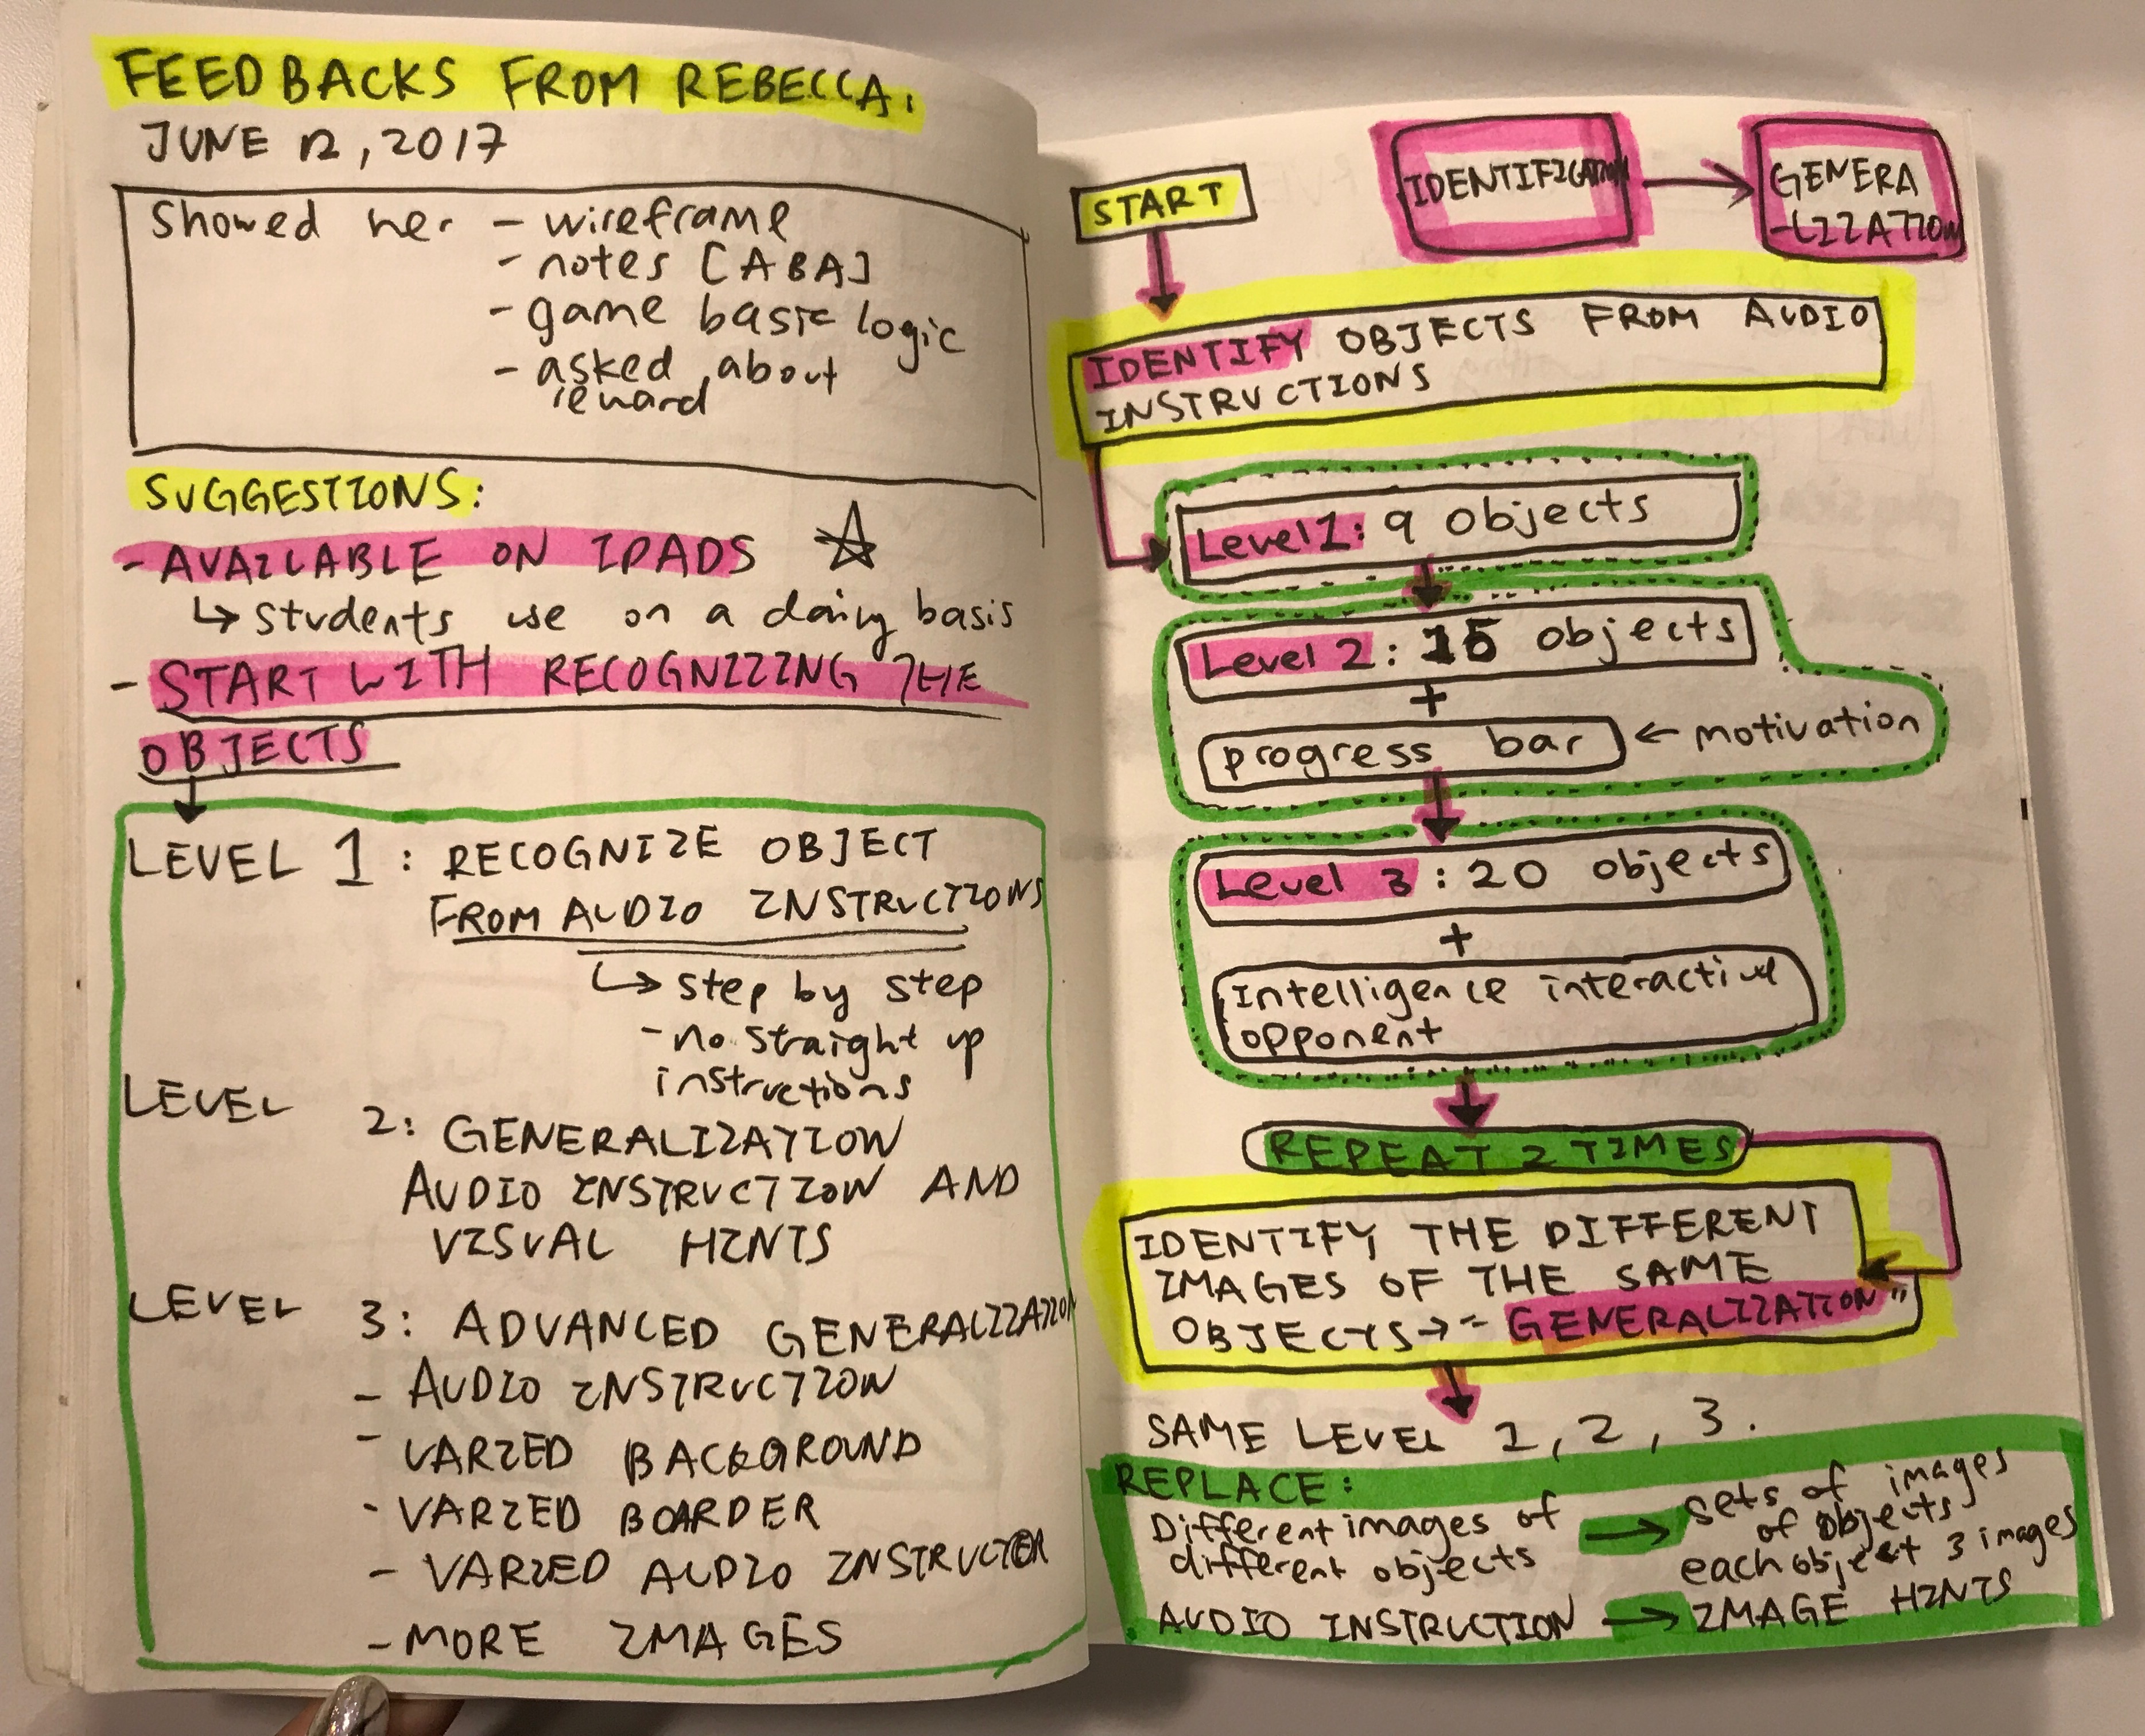 FEEDBACKS FROM REBECCA.
JUNE 12, 2017
Showed her - wireframe
- notes [ABA]
- game basic logic
- asked about
reward
SUGGESTIONS:
- AVAILABLE ON IPADS
↳ students use on a daily basis
- START WITH RECOGNIZING THE
OBJECTS
LEVEL 1: RECOGNIZE OBJECT
FROM AUDIO INSTRUCTIONS
↳ step by step
- no straight up
instructions
LEVEL 2: GENERALIZATION
AUDIO INSTRUCTION AND
VISUAL HINTS
LEVEL 3: ADVANCED GENERALIZATION
- AUDIO INSTRUCTION
- VARIED BACKGROUND
- VARIED BOARDER
- VARIED AUDIO INSTRUCTOR
- MORE IMAGES
START
IDENTIFICATION → GENERA
-LIZATION
IDENTIFY OBJECTS FROM AUDIO
INSTRUCTIONS
Level 1: 9 objects
Level 2: 15 objects
+
progress bar ← motivation
Level 3: 20 objects
+
Intelligence interactive
opponent
REPEAT 2 TIMES
IDENTIFY THE DIFFERENT
IMAGES OF THE SAME
OBJECTS → "GENERALIZATION"
SAME LEVEL 1, 2, 3.
REPLACE:
Different images of
different objects → sets of images
of objects
each object 3 images
AUDIO INSTRUCTION → IMAGE HINTS